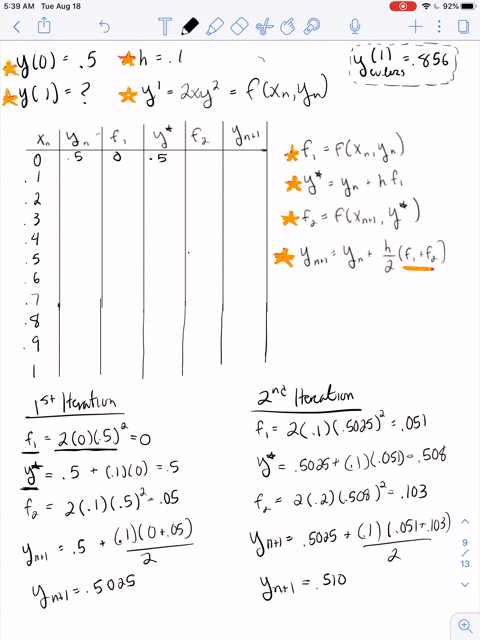 5:39 AM Tue Aug 18
92%
y(0) = .5
h = .1
y(1) = .856
eulers
y(1) = ?
y' = 2xy² = f(xₙ, yₙ)
xₙ yₙ f₁ y* f₂ yₙ₊₁
0 .5 0 .5
.1
.2
.3
.4
.5
.6
.7
.8
.9
1
f₁ = f(xₙ, yₙ)
y* = yₙ + hf₁
f₂ = f(xₙ₊₁, y*)
yₙ₊₁ = yₙ + h/2 (f₁ + f₂)
1st Iteration
f₁ = 2(0)(.5)² = 0
y* = .5 + (.1)(0) = .5
f₂ = 2(.1)(.5)² = .05
yₙ₊₁ = .5 + (.1)(0 + .05)/2
yₙ₊₁ = .5025
2nd Iteration
f₁ = 2(.1)(.5025)² = .051
y* = .5025 + (.1)(.051) = .508
f₂ = 2(.2)(.508)² = .103
yₙ₊₁ = .5025 + (.1)(.051 + .103)/2
yₙ₊₁ = .510
9
/
13